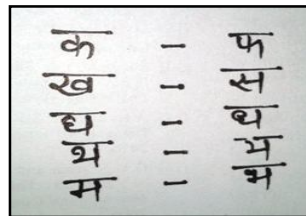 क - फ
ख - स
घ - ध
थ - य
म - भ